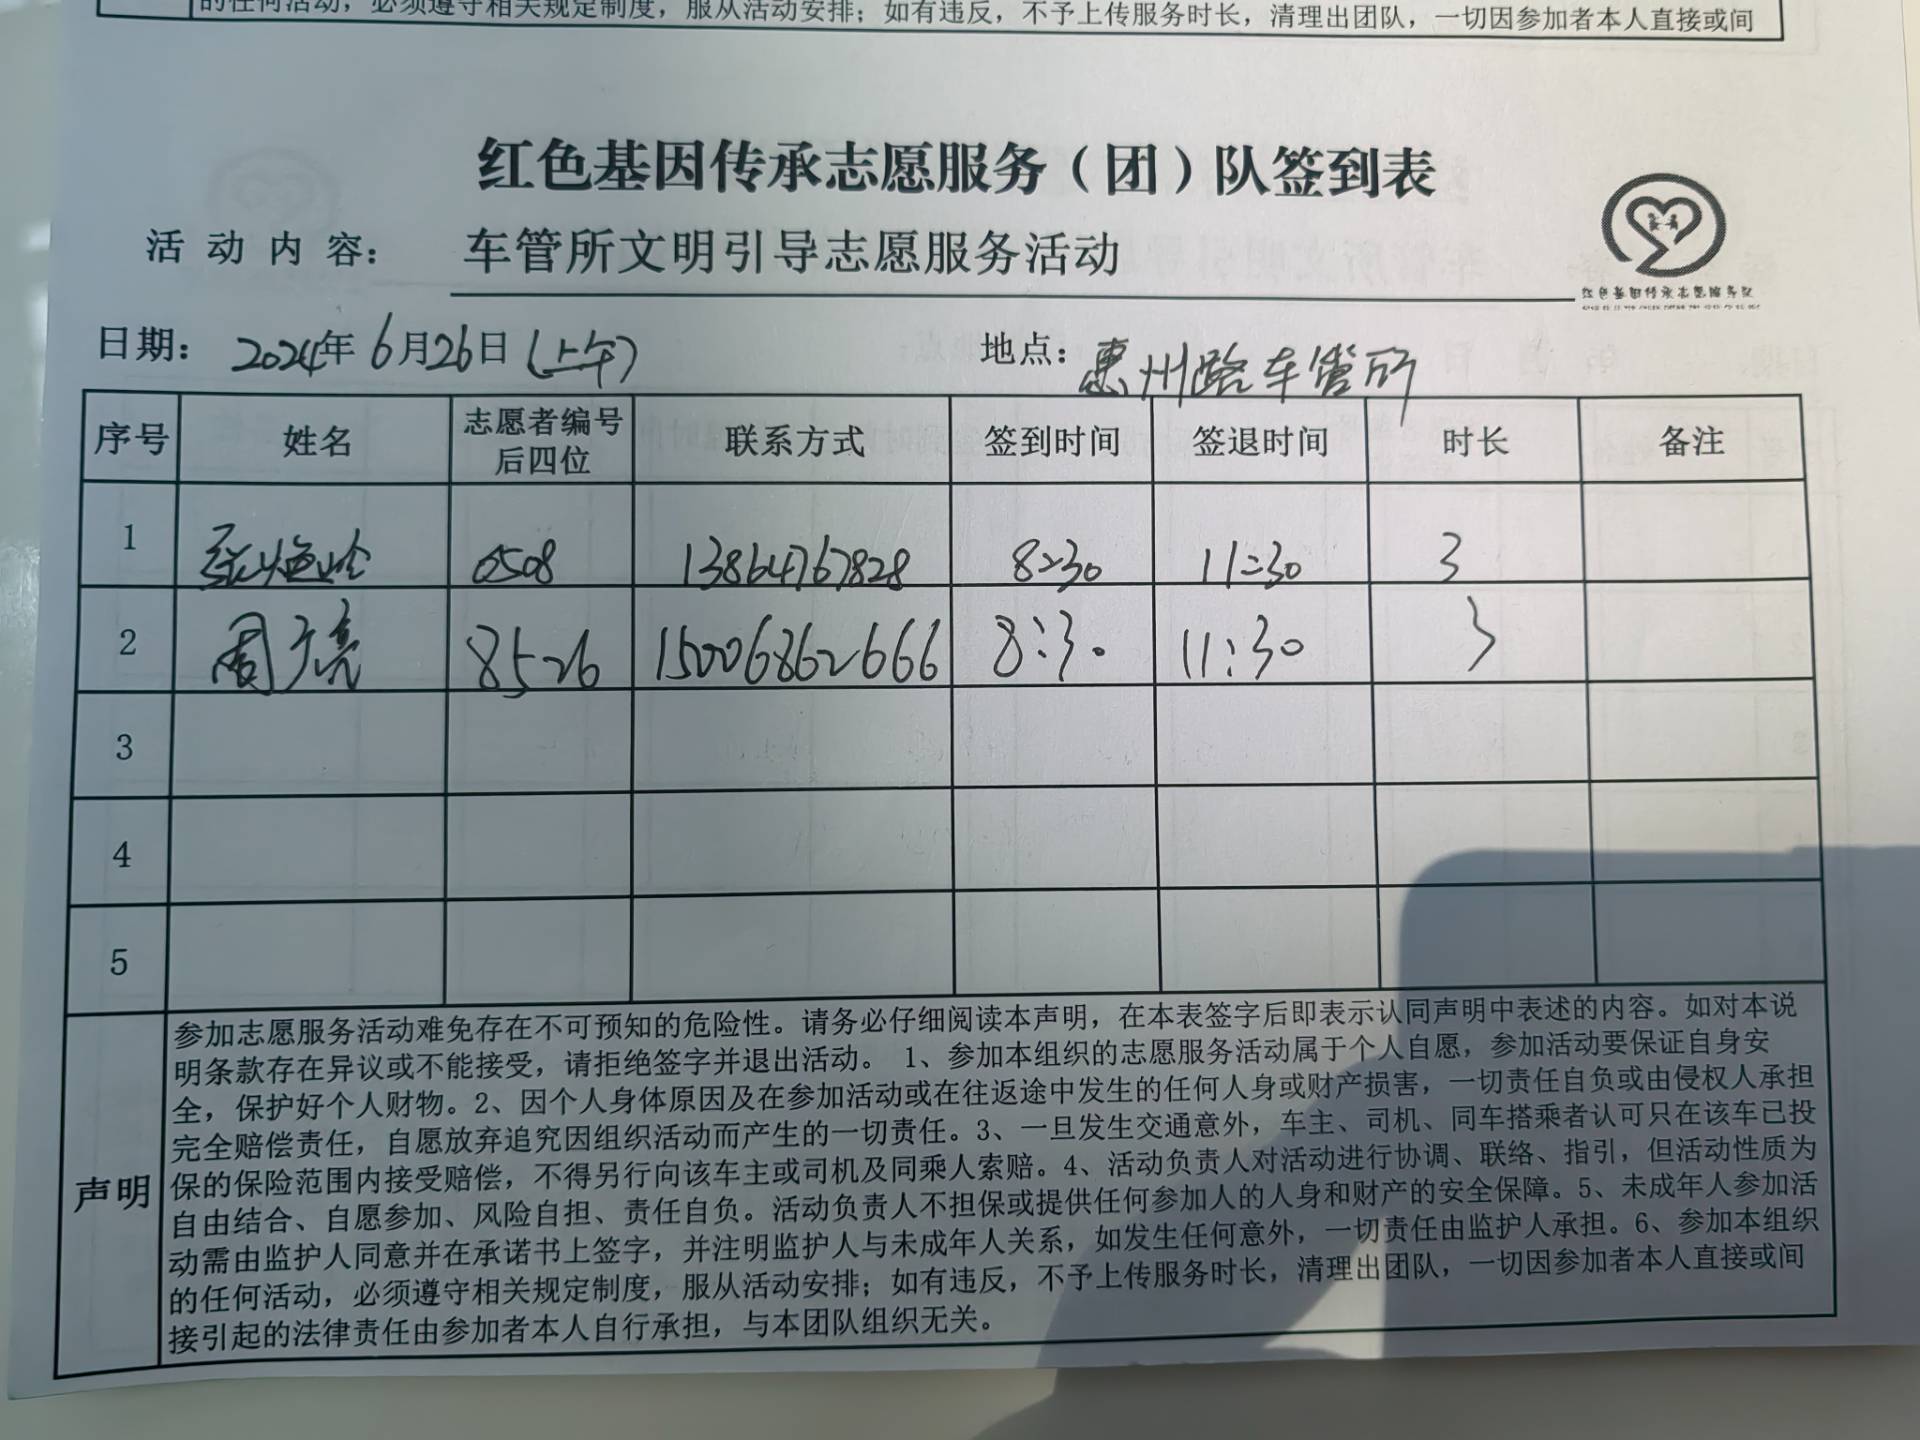 的任何活动，必须遵守相关规定制度，服从活动安排；如有违反，不予上传服务时长，清理出团队，一切因参加者本人直接或间
红色基因传承志愿服务（团）队签到表
活动内容： 车管所文明引导志愿服务活动
红色基因传承志愿服务队
日期： 2024年6月26日（上午） 地点：惠州路车管所
序号 姓名 志愿者编号后四位 联系方式 签到时间 签退时间 时长 备注
1 张 0508 13864767828 8:30 11:30 3
2 周广亮 8526 15006862666 8:30 11:30 3
3
4
5
声明
参加志愿服务活动难免存在不可预知的危险性。请务必仔细阅读本声明，在本表签字后即表示认同声明中表述的内容。如对本说
明条款存在异议或不能接受，请拒绝签字并退出活动。 1、参加本组织的志愿服务活动属于个人自愿，参加活动要保证自身安
全，保护好个人财物。2、因个人身体原因及在参加活动或在往返途中发生的任何人身或财产损害，一切责任自负或由侵权人承担
完全赔偿责任，自愿放弃追究因组织活动而产生的一切责任。3、一旦发生交通意外，车主、司机、同车搭乘者认可只在该车已投
保的保险范围内接受赔偿，不得另行向该车主或司机及同乘人索赔。4、活动负责人对活动进行协调、联络、指引，但活动性质为
自由结合、自愿参加、风险自担、责任自负。活动负责人不担保或提供任何参加人的人身和财产的安全保障。5、未成年人参加活
动需由监护人同意并在承诺书上签字，并注明监护人与未成年人关系，如发生任何意外，一切责任由监护人承担。6、参加本组织
的任何活动，必须遵守相关规定制度，服从活动安排；如有违反，不予上传服务时长，清理出团队，一切因参加者本人直接或间
接引起的法律责任由参加者本人自行承担，与本团队组织无关。